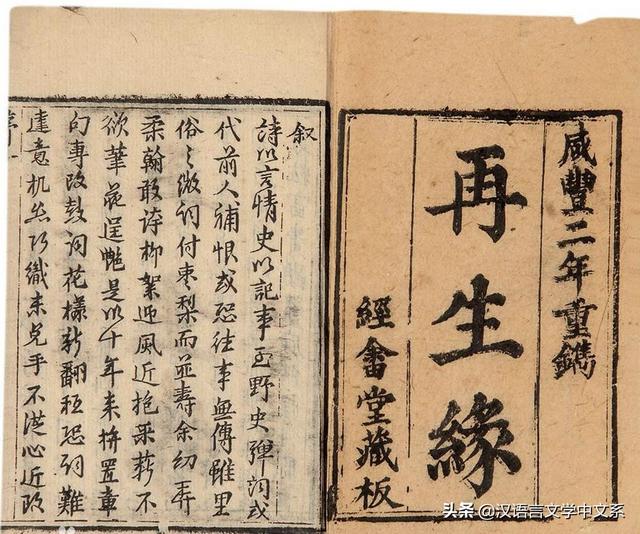 咸豐二年重鐫
再生緣
經畬堂藏板
叙
詩以言情史以記事至野史彈詞或
代前人補恨或恐往事無傳雖里
俗之微詞付棗梨而並壽余幼弄
柔翰敢誇柳絮迎風近抱采薪不
欲筆花逞艷是以十年来拚置章
句專改鼓詞花樣新翻秪恐詞難
達意机絲巧織未免手不從心近改
头条 @汉语言文学中文系